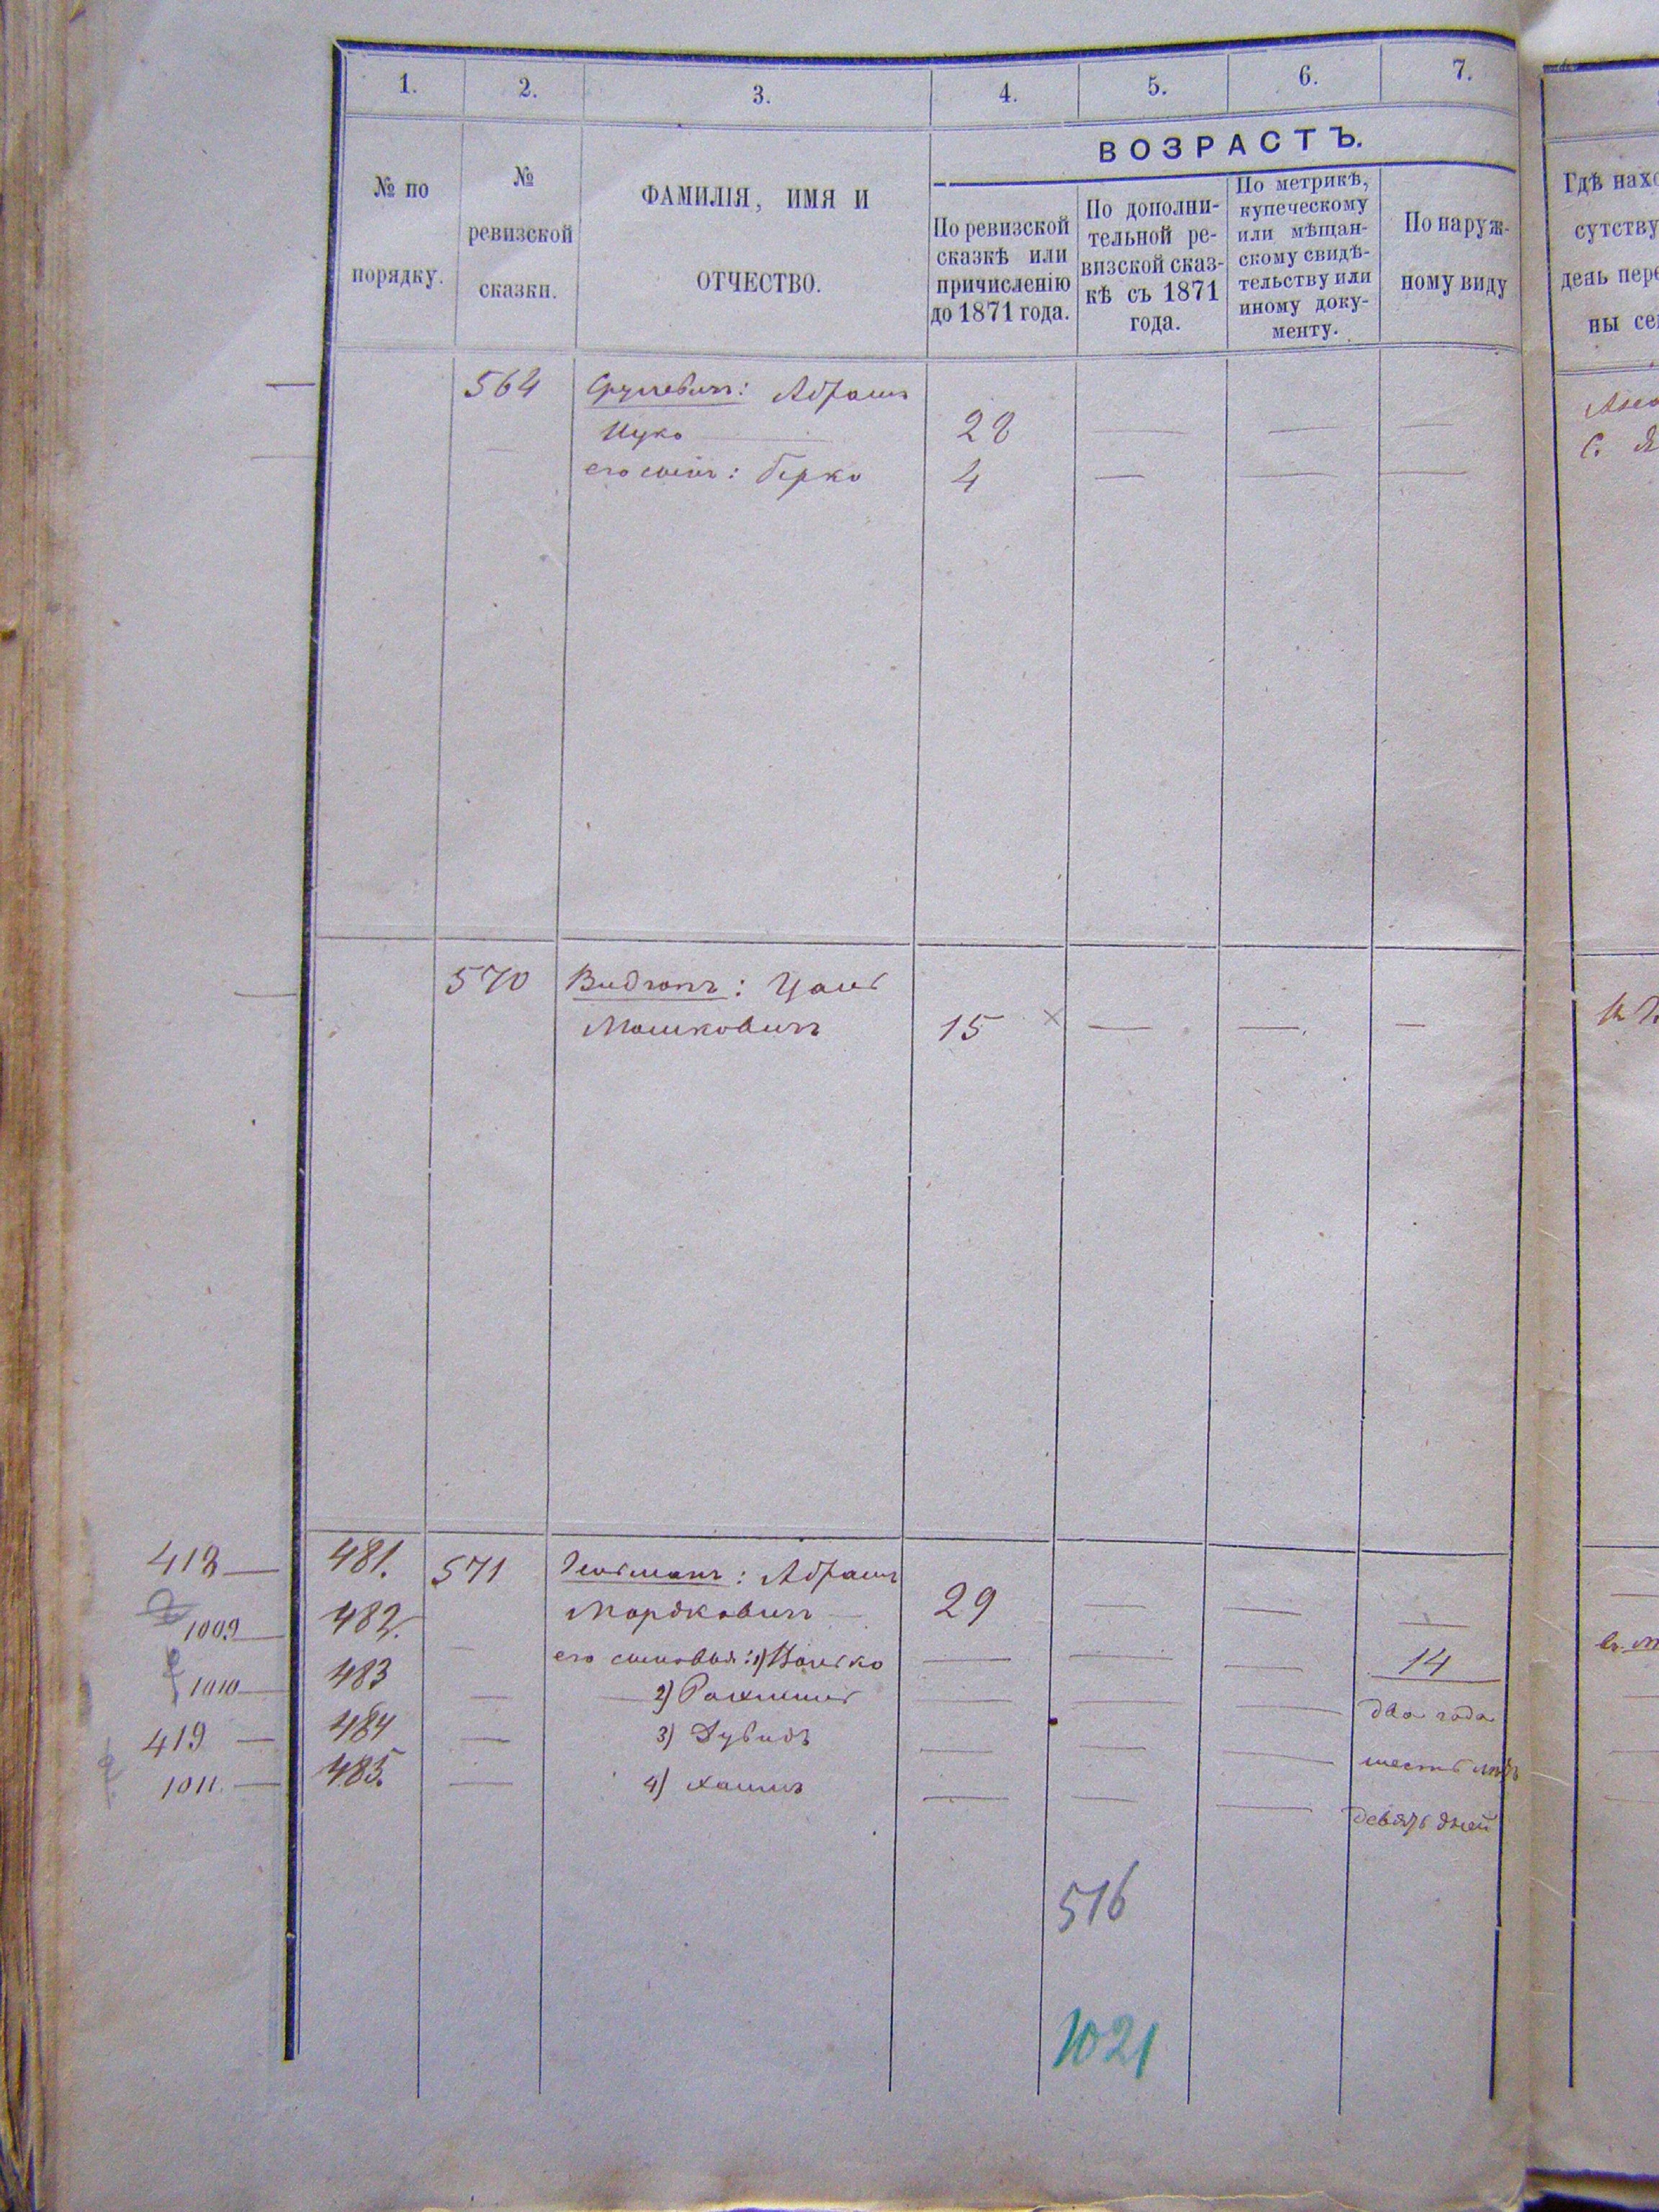 1. 2. 3. 4. 5. 6. 7.
№ по порядку.
№ ревизской сказки.
ФАМИЛІЯ, ИМЯ И
ОТЧЕСТВО.
ВОЗРАСТЪ.
По ревизской
сказкѣ или
причисленію
до 1871 года.
По дополни-
тельной ре-
визской сказ-
кѣ съ 1871
года.
По метрикѣ,
купеческому
или мѣщан-
скому свидѣ-
тельству или
иному доку-
менту.
По наруж-
ному виду
Гдѣ нахо
сутству
день пере
ны се
564 Срулевичъ: Абрамъ
Ицко 28
его сынъ: Берко 4
570 Видгопъ: Цаль
Мошковичъ 15 ×
418 481. 571 Абрамъ
1009 482. Мордковичъ 29
1010 483 его сыновья: 1) Волько 14
419 484 2) Рахмиль два года
1011 485. 3) Дувидъ шесть лѣтъ
4) Хаимъ девять дней
516
1021